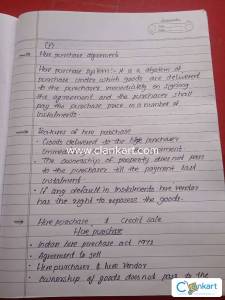 Hire purchase agreement
Hire purchase system :- it is a system of
purchase under which goods are delivered
to the purchaser immediately on signing
the agreement and the purchaser shall
pay the purchase price in a number of
instalments.
Features of hire purchase
Goods delivered to the hire purchaser
The ownership of property does not pass
to the purchaser till the payment last
instalment.
If any default in instalments hire vendor
has the right to reposses the goods.
www.clankart.com
Hire purchase & credit sale
Hire purchase
Indian hire purchase act 1972
Agreement to sell
Hire purchaser & hire vendor
Ownership of goods does not pass to the
Clankart